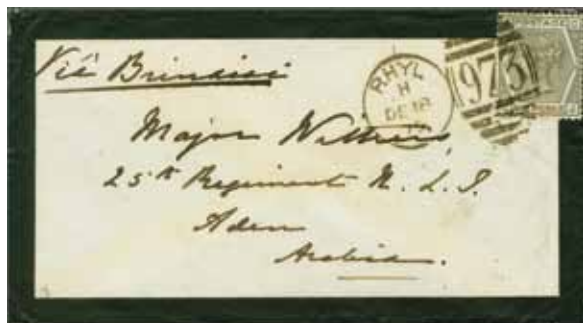 Viâ Brindisi
RHYL
H
DE 18
973
Major
25th Regiment N. L. I.
Aden
Arabia.